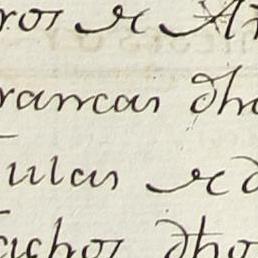 ros de A
rancas dho
ulas de d
achos dho